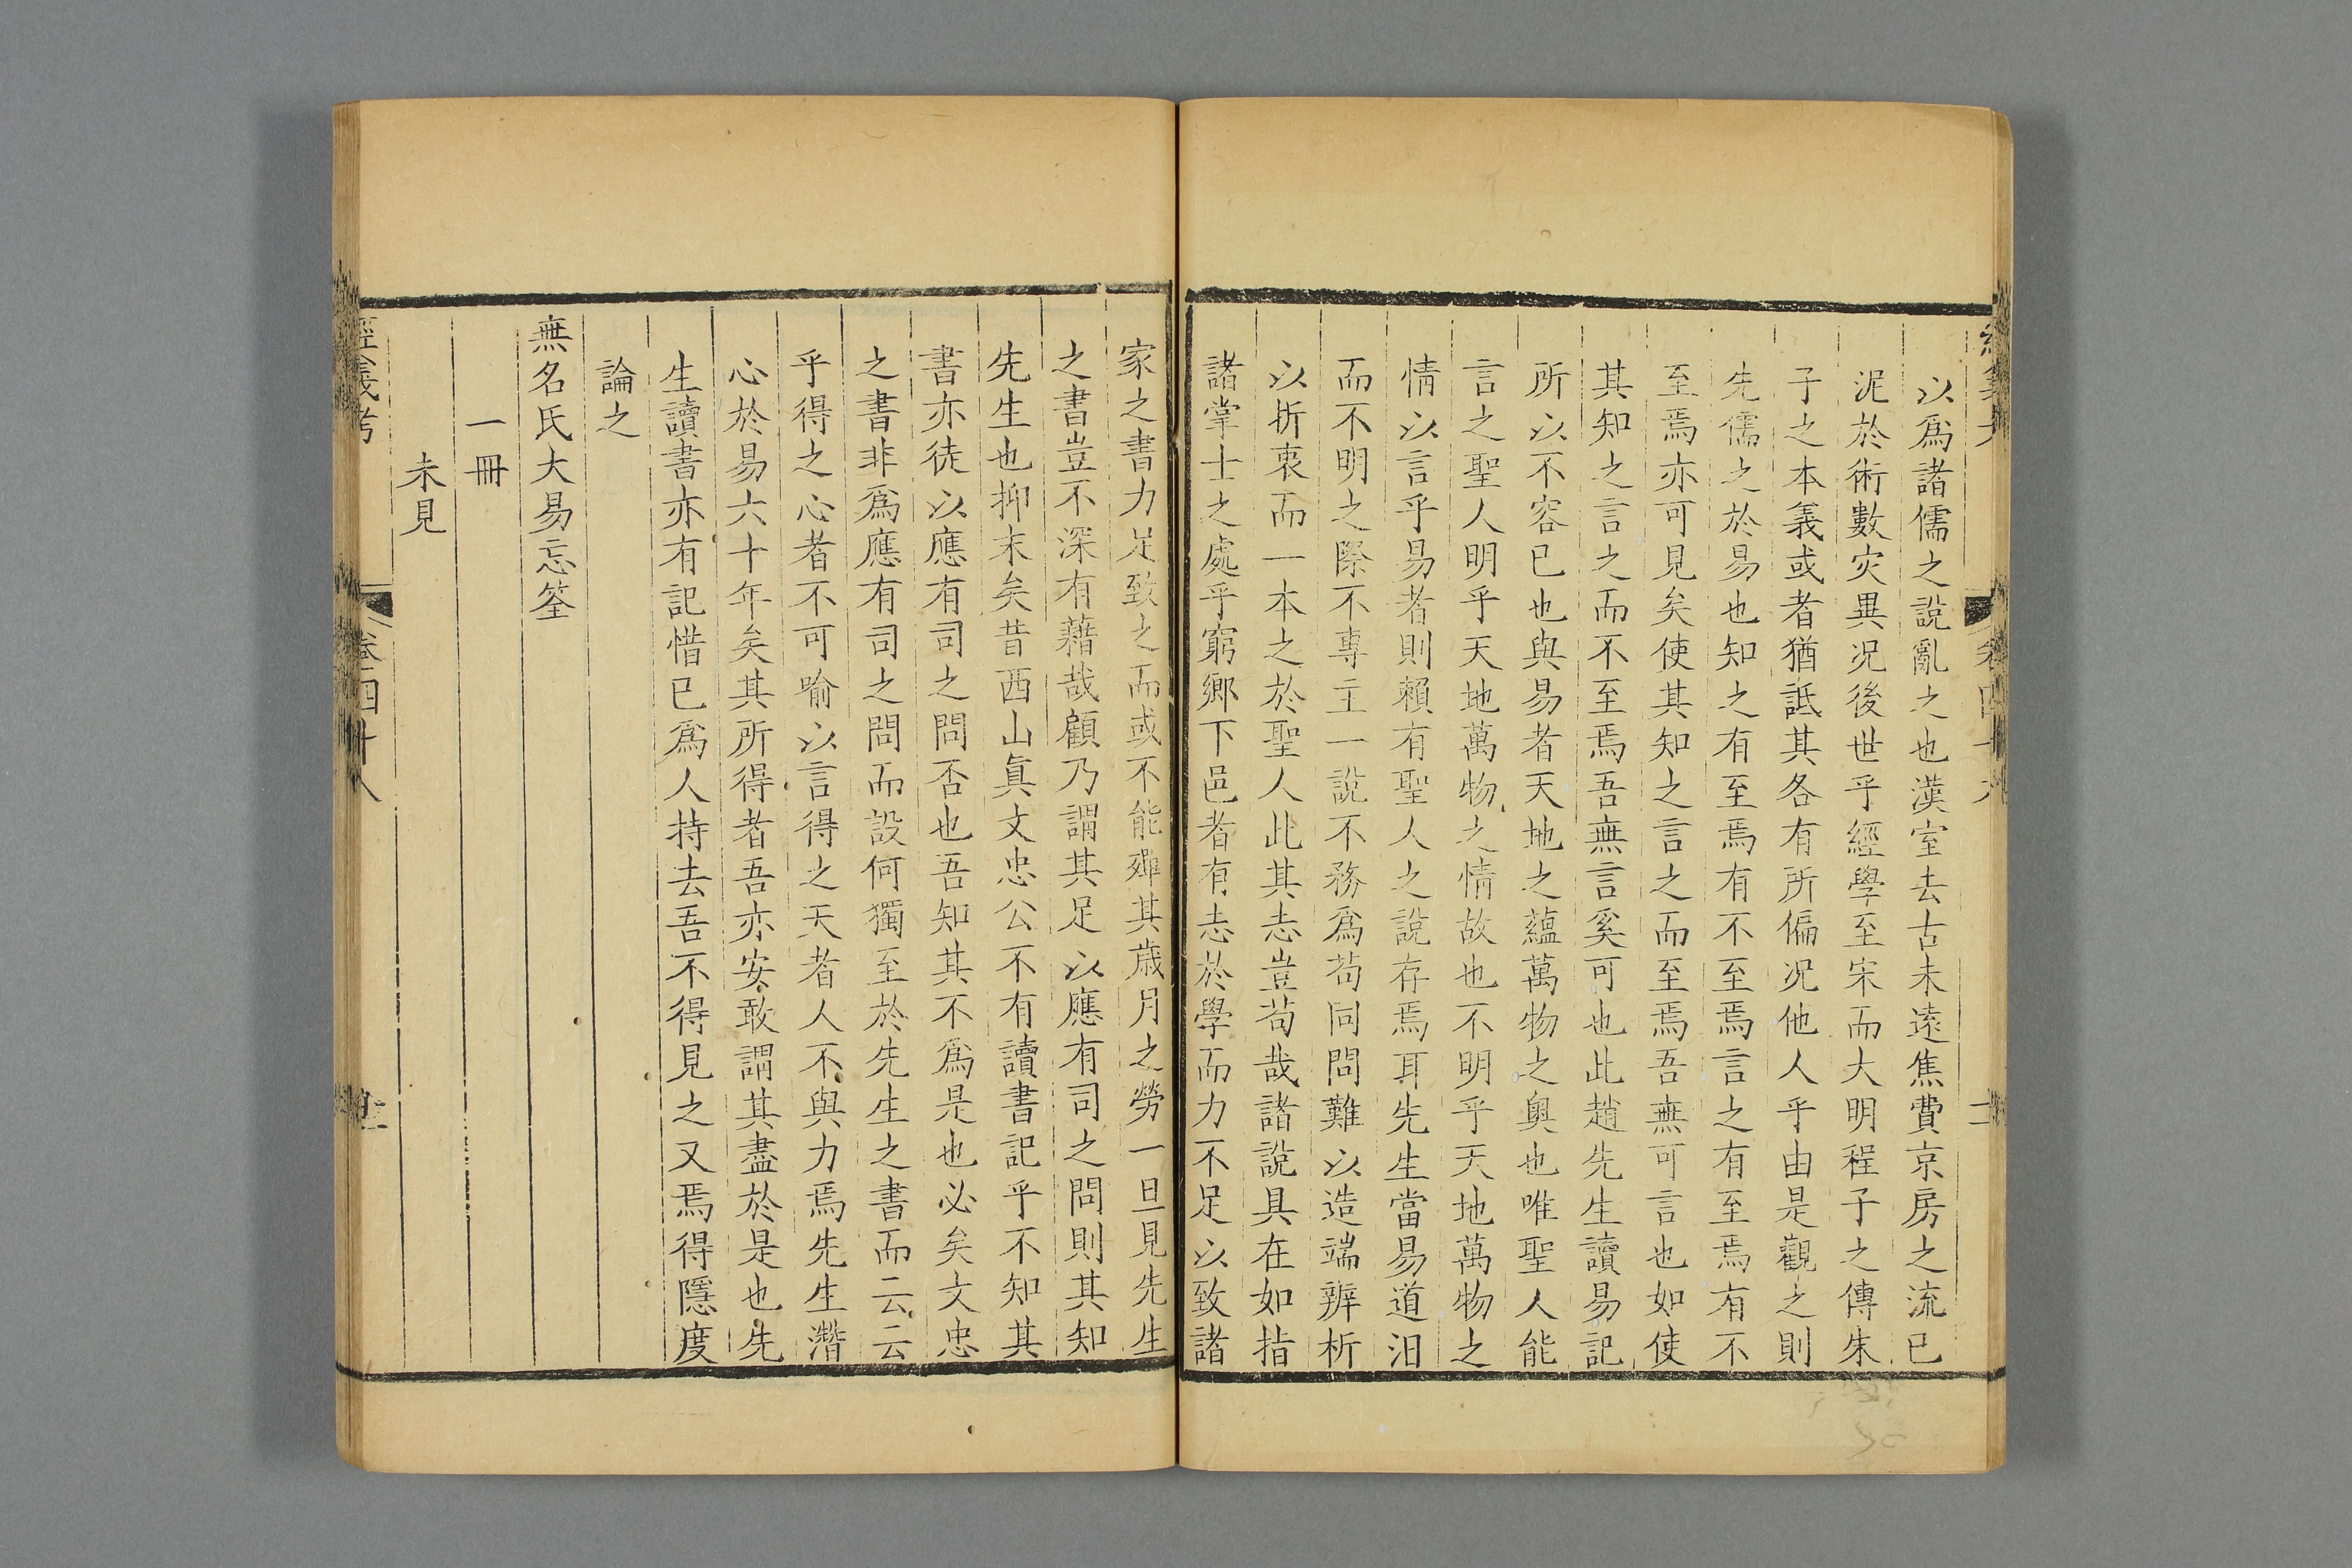 以爲諸儒之說亂之也漢室去古未遠焦費京房之流已
泥於術數灾異况後世乎經學至宋而大明程子之傳朱
子之本義或者猶詆其各有所偏况他人乎由是觀之則
先儒之於易也知之有至焉有不至焉言之有至焉有不
至焉亦可見矣使其知之言之而至焉吾無可言也如使
其知之言之而不至焉吾無言奚可也此趙先生讀易記
所以不容已也與易者天地之蘊萬物之奧也唯聖人能
言之聖人明乎天地萬物之情故也不明乎天地萬物之
情以言乎易者則賴有聖人之說存焉耳先生當易道汨
而不明之際不專主一說不務爲苟同問難以造端辨析
以折衷而一本之於聖人此其志豈苟哉諸說具在如指
諸掌士之處乎窮鄉下邑者有志於學而力不足以致諸
家之書力足致之而或不能殫其歲月之勞一旦見先生
之書豈不深有藉哉顧乃謂其足以應有司之問則其知
先生也抑末矣昔西山眞文忠公不有讀書記乎不知其
書亦徒以應有司之問否也吾知其不爲是也必矣文忠
之書非爲應有司之問而設何獨至於先生之書而云云
乎得之心者不可喻以言得之天者人不與力焉先生潛
心於易六十年矣其所得者吾亦安敢謂其盡於是也先
生讀書亦有記惜已爲人持去吾不得見之又焉得隱度
論之
無名氏大易忘筌
一冊
未見
經義考
卷四十八